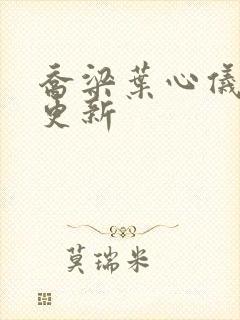 乔梁葉心儀
更新
莫瑞米